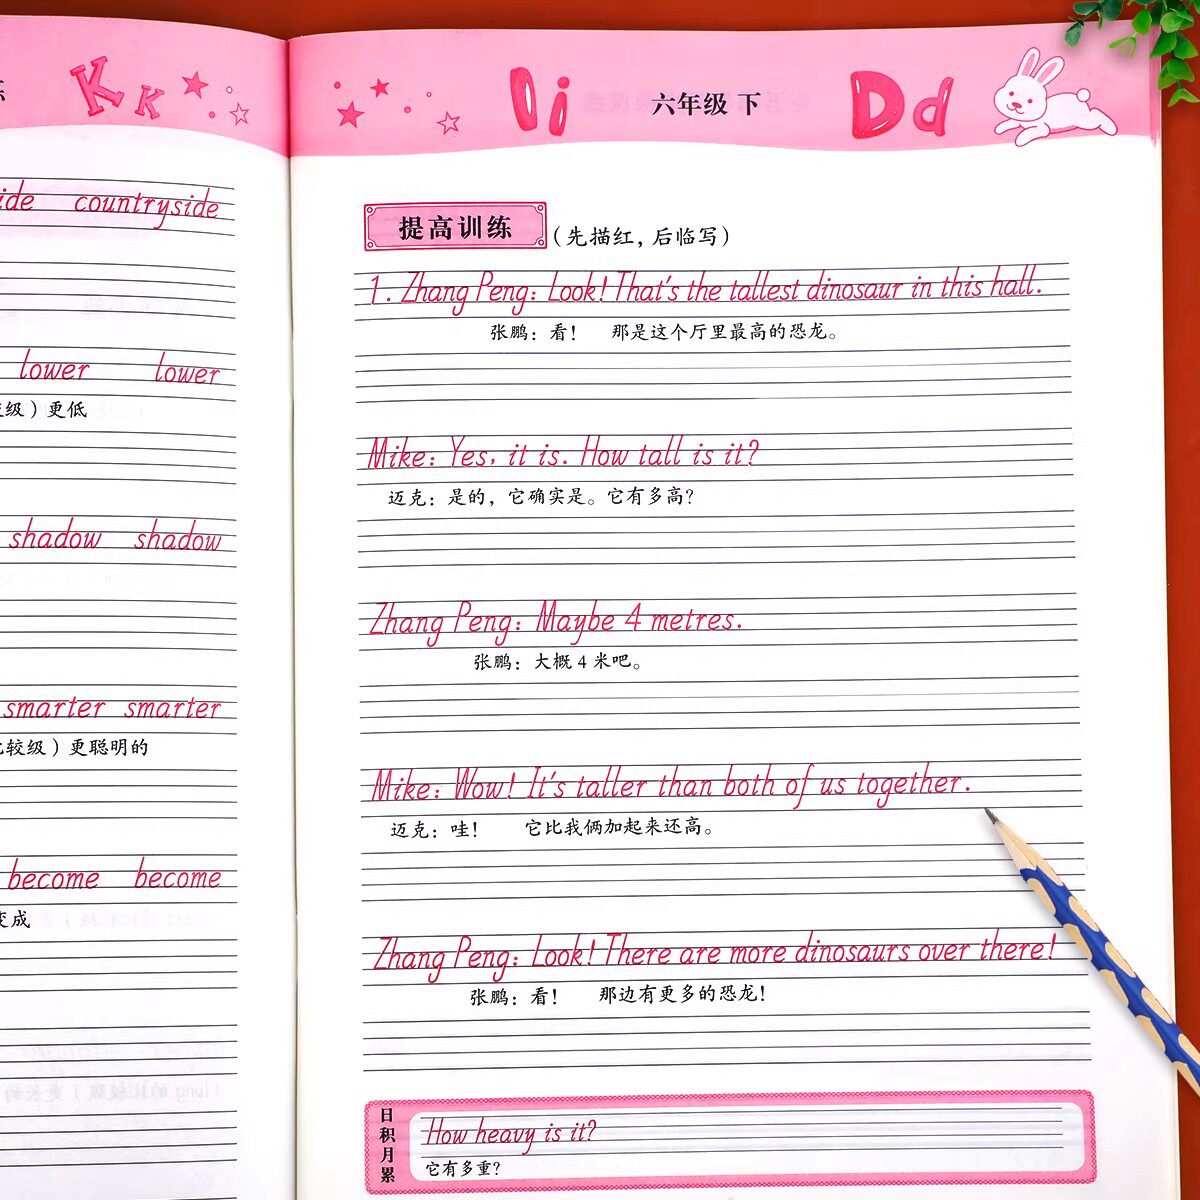 K k
countryside
lower lower
更低
shadow shadow
smarter smarter
较级）更聪明的
become become
变成
I i 六年级 下 D d
提高训练（先描红，后临写）
1. Zhang Peng: Look! That's the tallest dinosaur in this hall.
张鹏：看！ 那是这个厅里最高的恐龙。
Mike: Yes, it is. How tall is it?
迈克：是的，它确实是。它有多高？
Zhang Peng: Maybe 4 metres.
张鹏：大概 4 米吧。
Mike: Wow! It's taller than both of us together.
迈克：哇！ 它比我俩加起来还高。
Zhang Peng: Look! There are more dinosaurs over there!
张鹏：看！ 那边有更多的恐龙！
日积月累
How heavy is it?
它有多重？